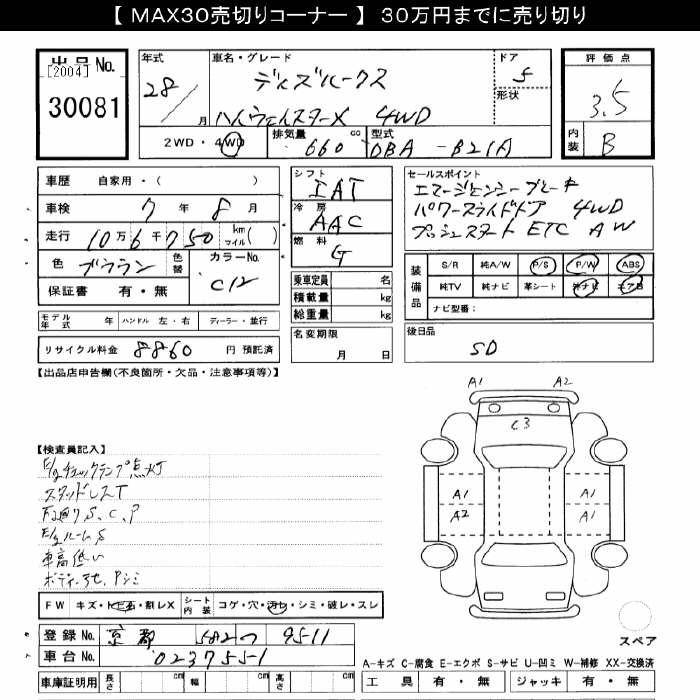 【 MAX30売切りコーナー 】 30万円までに売り切り
出品No.
[2004]
30081
年式 28 / 月
車名・グレード デイズルークス
ハイウェイスターX 4WD
ドア 5
形状
2WD・4WD
排気量 660 cc
型式 DBA-B21A
評価点 3.5
内装 B
車歴 自家用・( )
車検 7年8月
走行 10万6千750 km マイル( )
色 ブラウン 色替 カラーNo. C12
保証書 有・無
シフト IAT
冷房 AAC
燃料 G
乗車定員 名
積載量 kg
総重量 kg
セールスポイント
エマージェンシーブレーキ
パワースライドドア 4WD
プッシュスタート ETC AW
装備品
S/R 純A/W P/S P/W ABS
純TV 純ナビ 革シート 社ナビ エアB
ナビ型番:
モデル年式 年 ハンドル 左・右 ディーラー・並行
リサイクル料金 8860 円 預託済
名変期限 月 日
後日品 SD
【出品店申告欄(不良箇所・欠品・注意事項等)】
【検査員記入】
E/gチェックランプ点灯
スタッドレスT
F廻りS、C、P
E/gルームS
車高低い
ボディ、シミ
A1 A2
C3
A1 A1
A2 A1
FW キズ・トビ石・割レX シート内装 コゲ・穴・汚レ・シミ・破レ・スレ
登録No. 京都 582 つ 95-11
車台No. 0237551
車庫証明用 長さ cm 幅 cm 高さ cm
スペア
A-キズ C-腐食 E-エクボ S-サビ U-凹ミ W-補修 XX-交換済
工具 有・無 ジャッキ 有・無